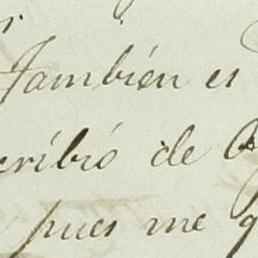 También es
cribió de
pues me